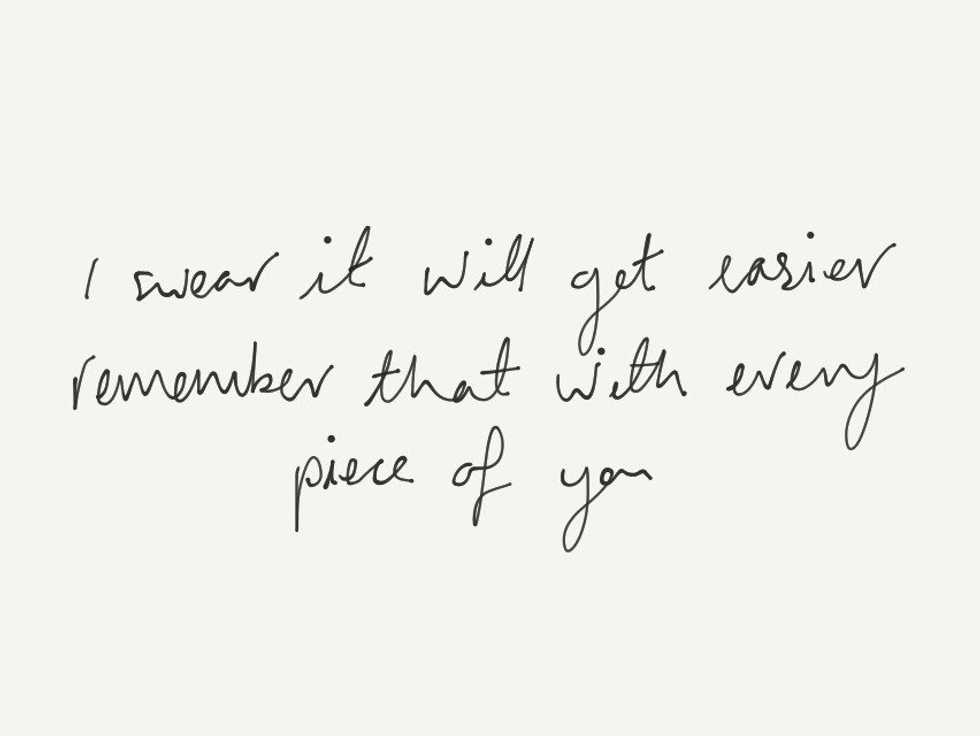 I swear it will get easier
remember that with every
piece of you